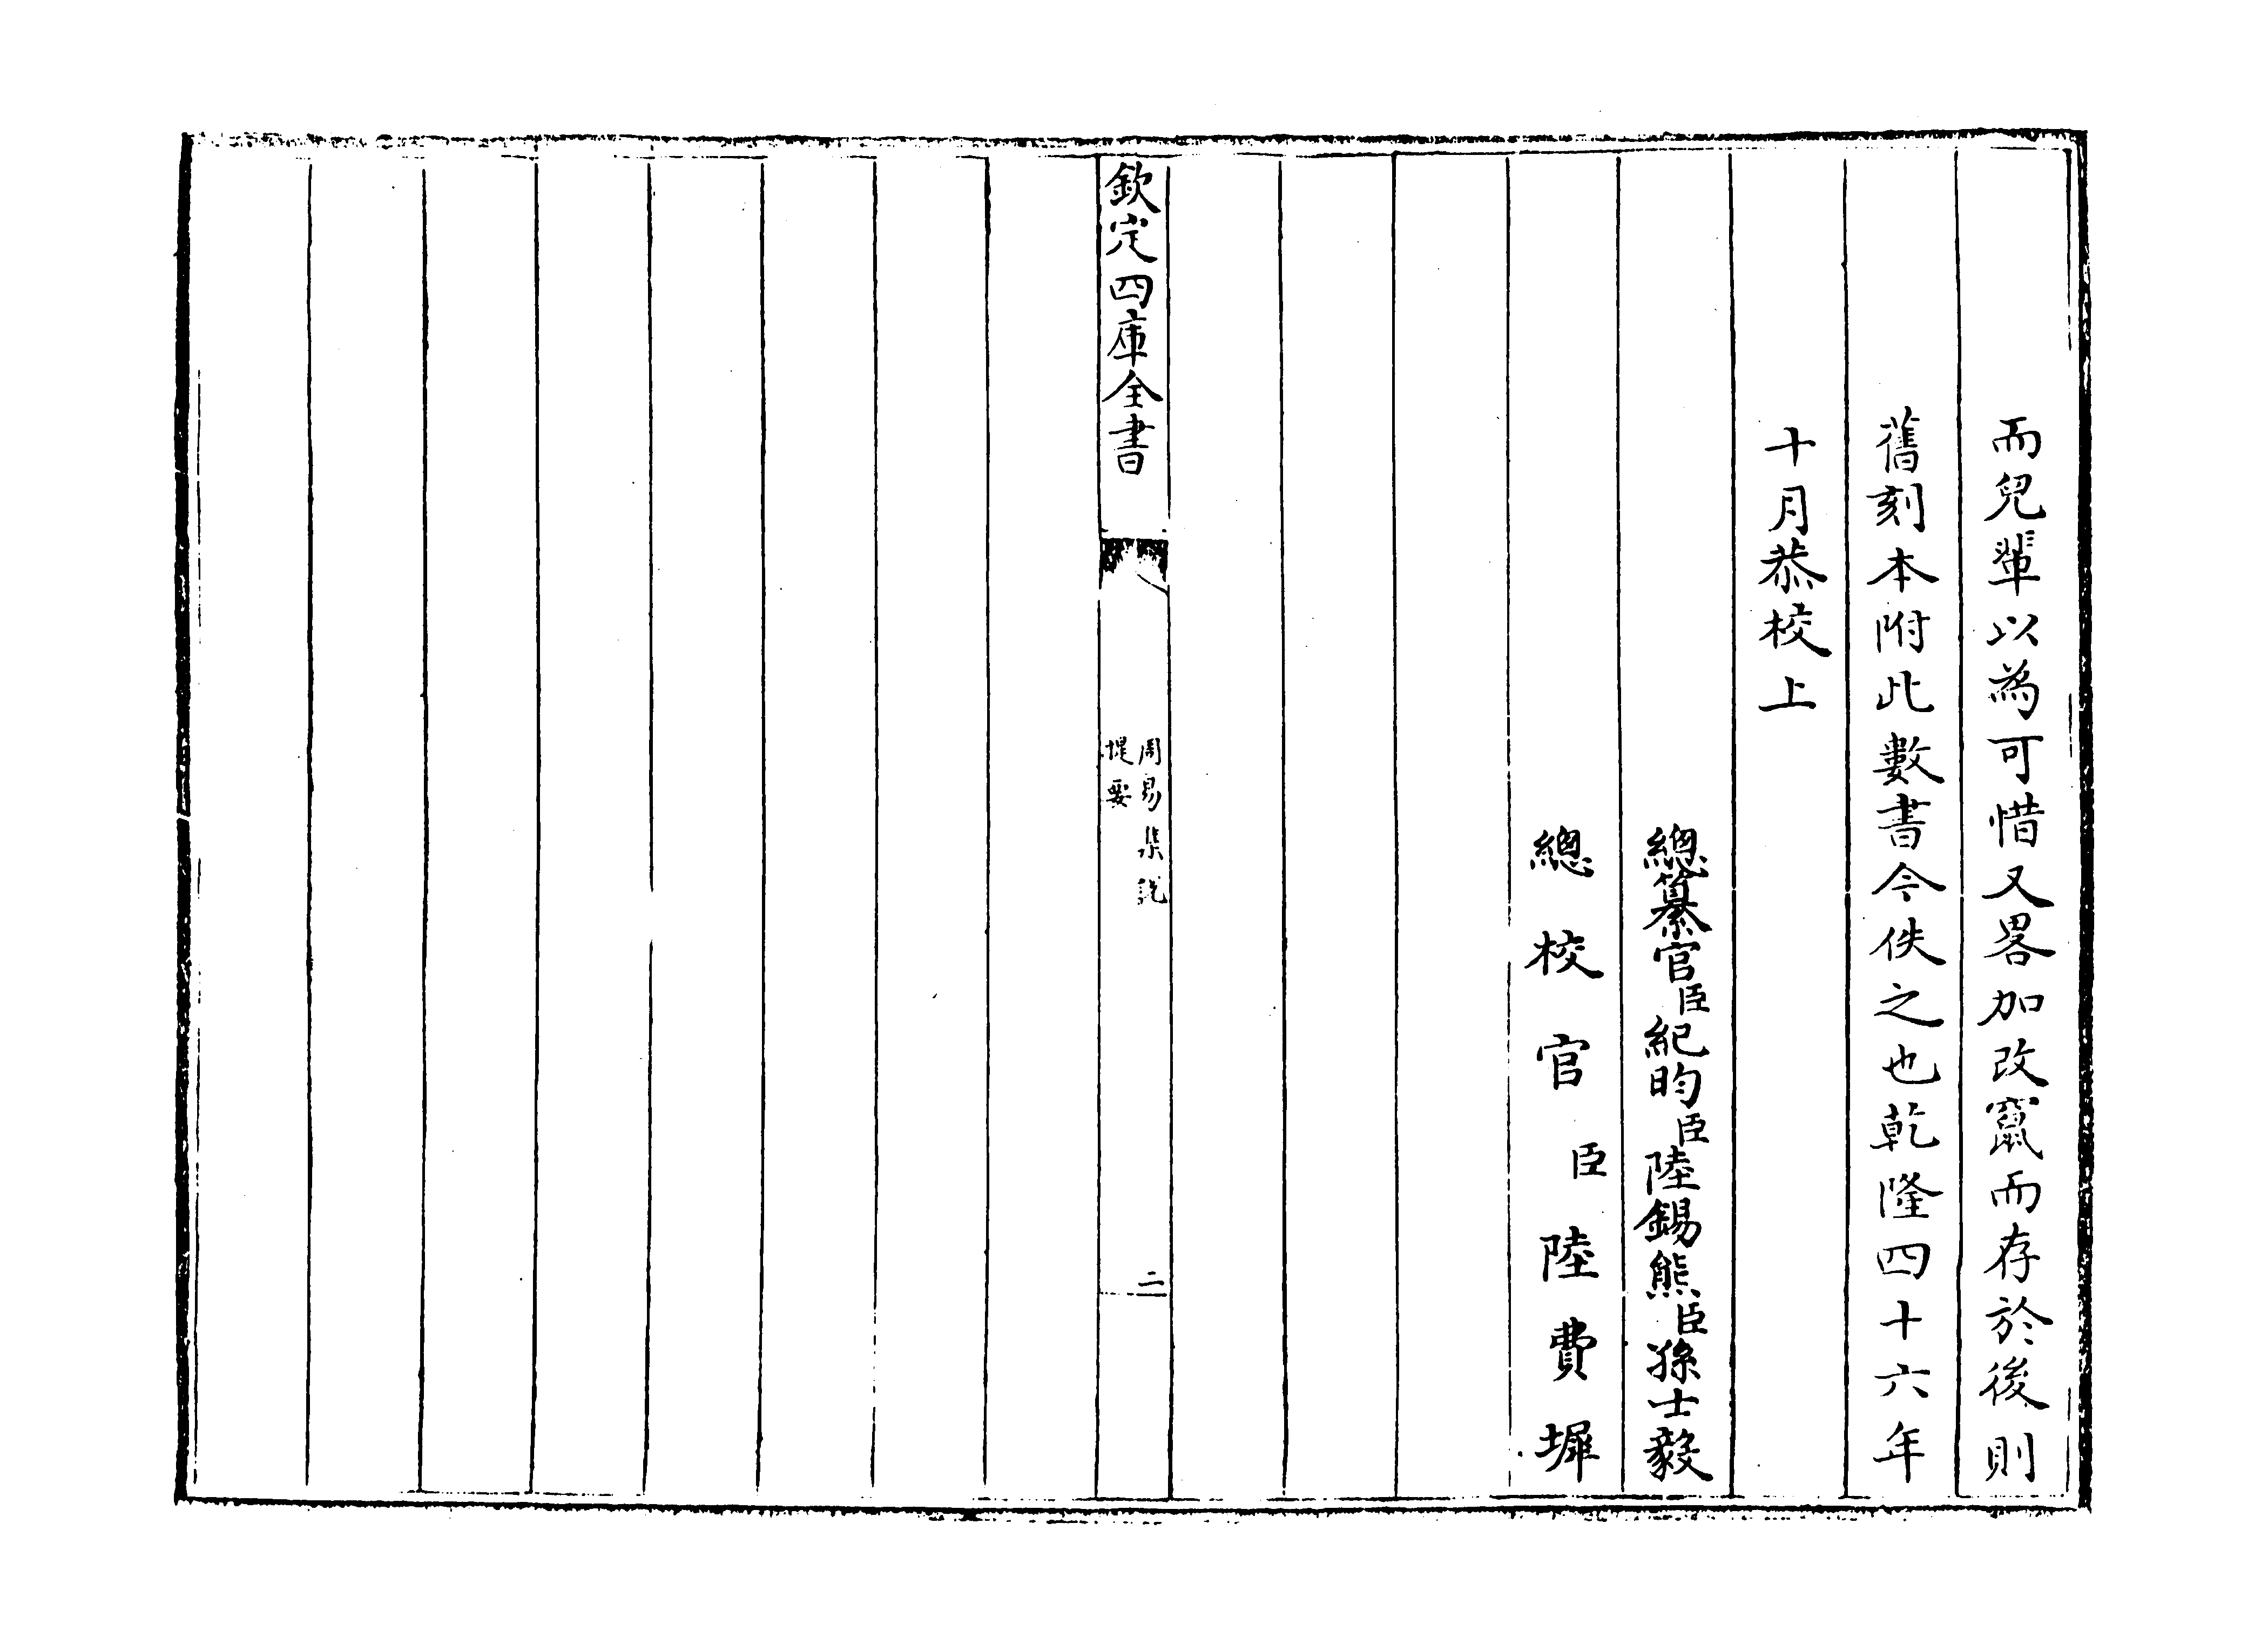 而兒輩以為可惜又畧加改竄而存於後則
舊刻本附此數書今佚之也乾隆四十六年
十月恭校上
總纂官臣紀昀臣陸錫熊臣孫士毅
總校官臣陸費墀
欽定四庫全書
周易集說
提要
二